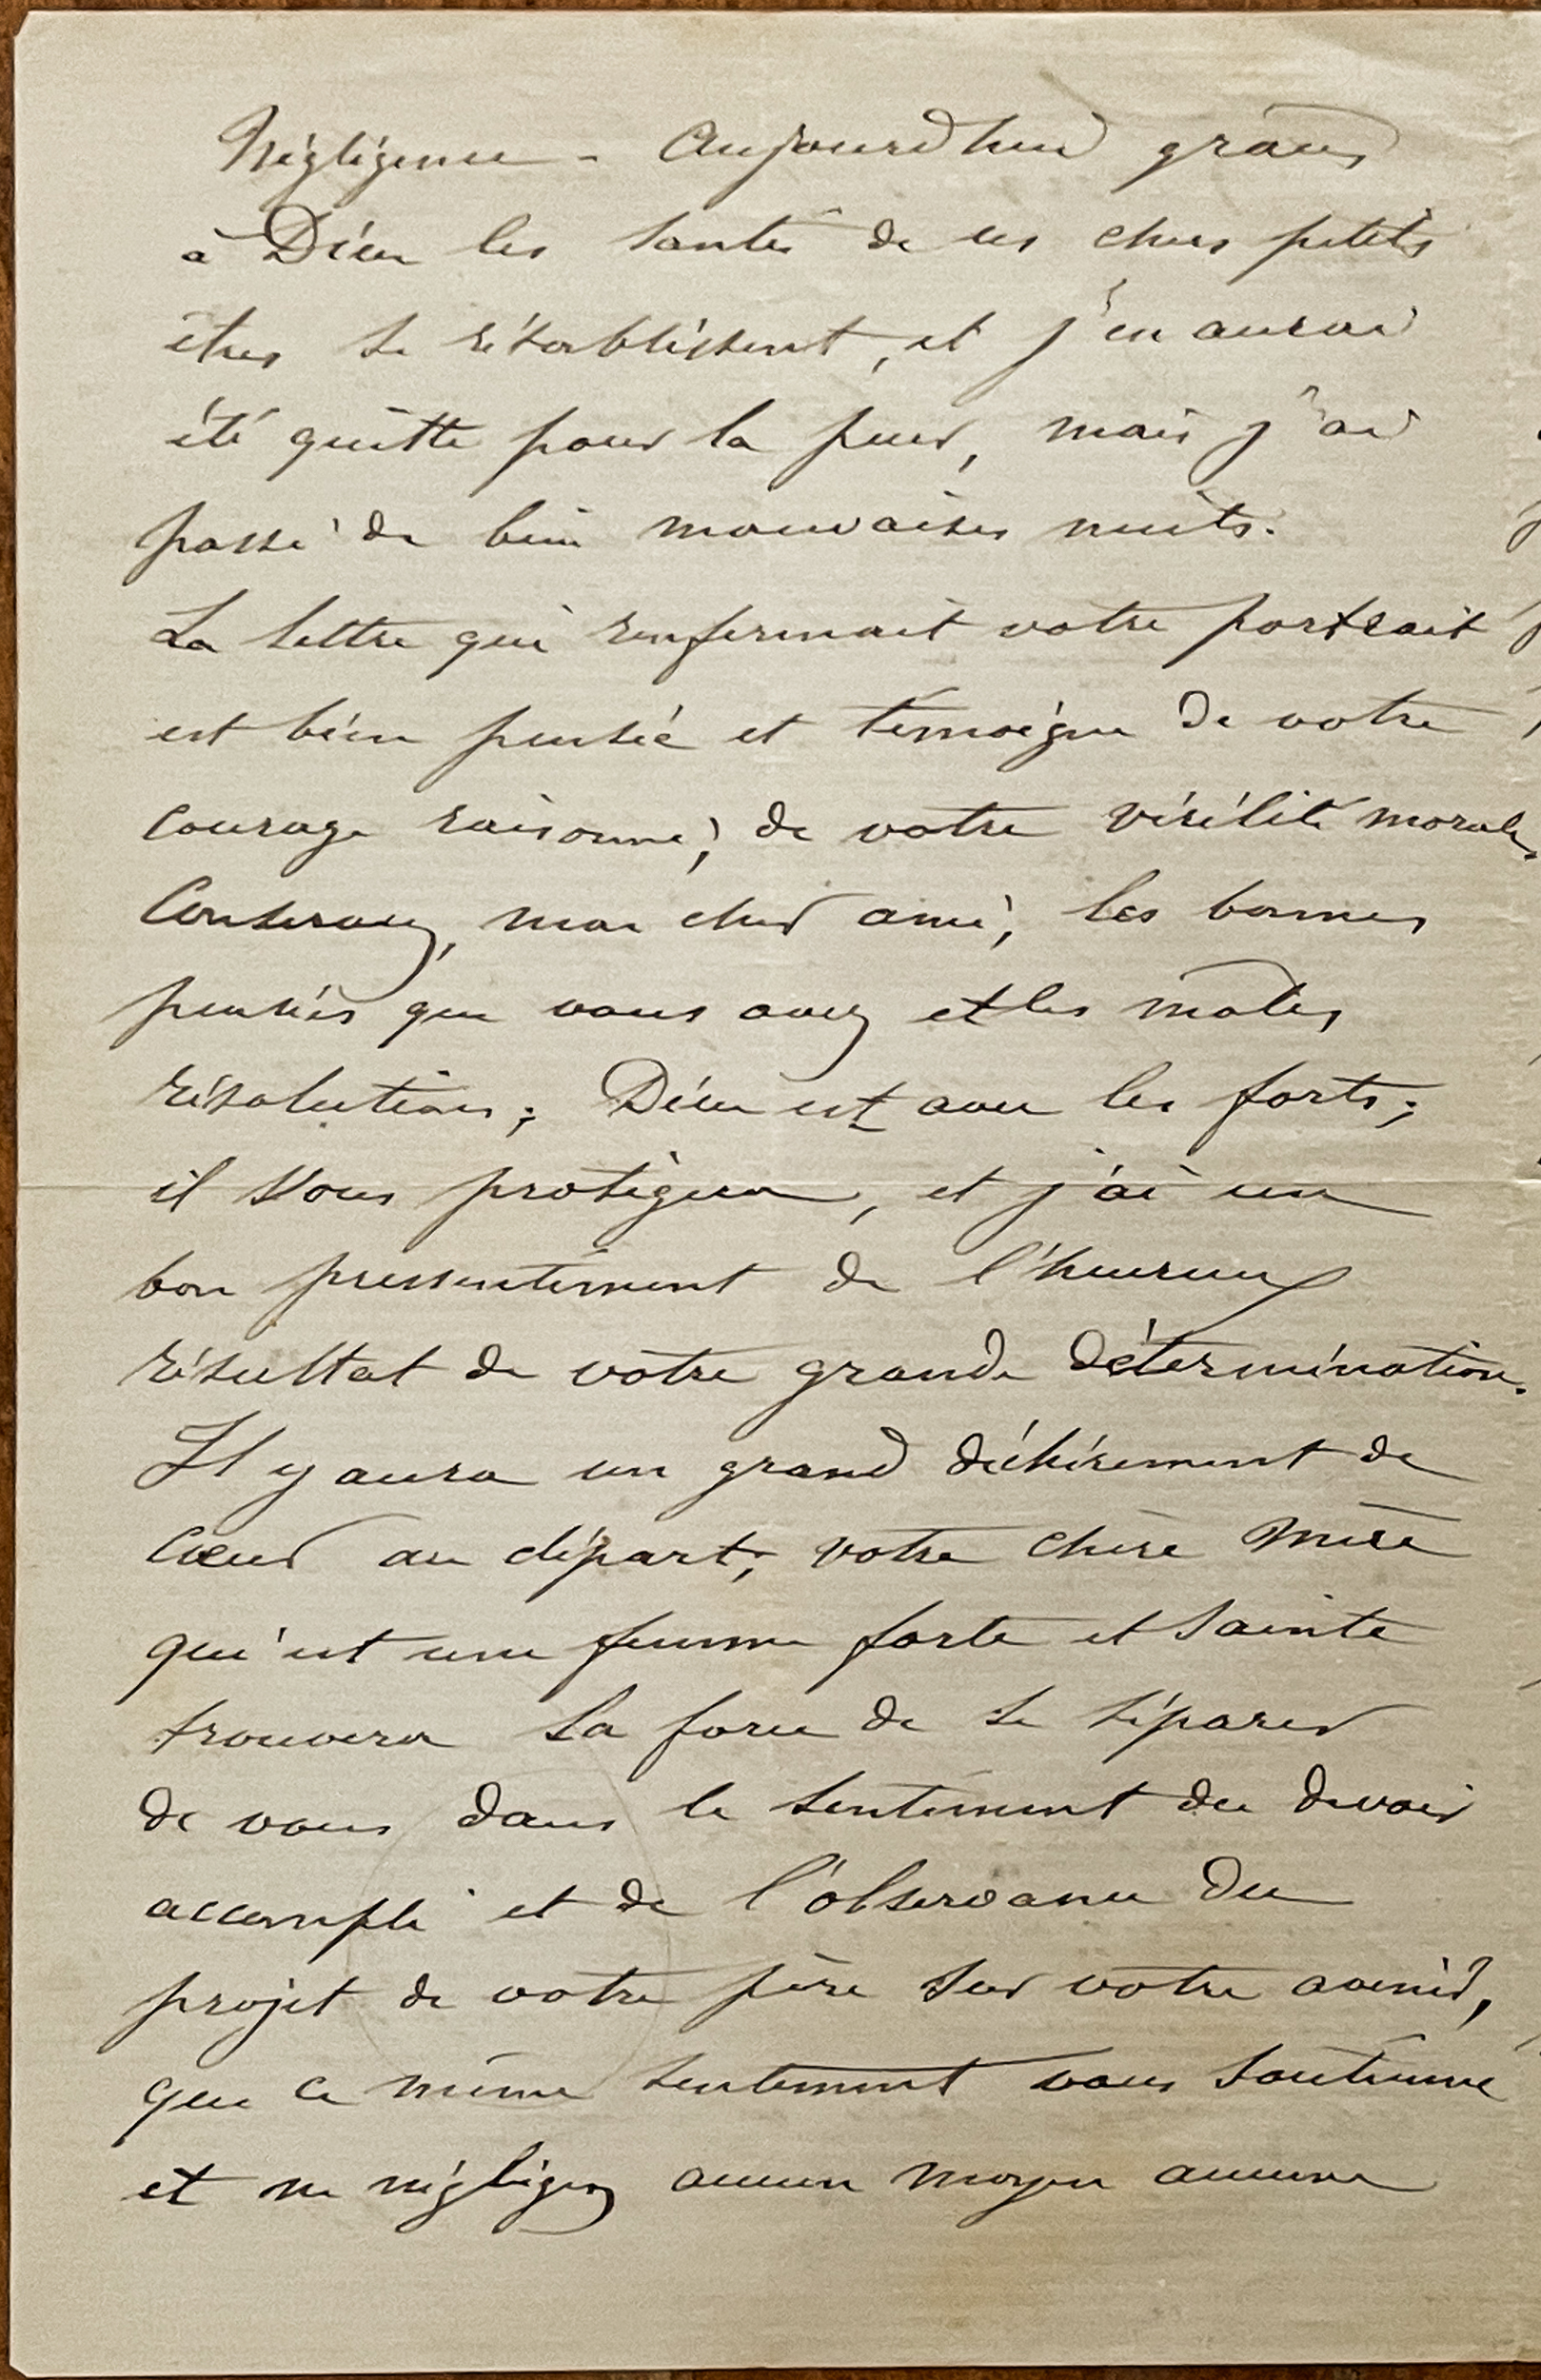 Négligence - Aujourd'hui grâces
à Dieu les santés de ces chers petits
êtres se rétablissent, et j'en aurai
été quitte pour la peur, mais j'ai
passé de bien mauvaises nuits.
La lettre qui renfermait votre portrait
est bien pensée et témoigne de votre
courage raisonné, de votre virilité morale.
Conservez, mon cher ami, les bonnes
pensées que vous avez et les mâles
résolutions; Dieu est avec les forts;
il vous protègera, et j'ai un
bon pressentiment de l'heureux
résultat de votre grande détermination.
Il y aura un grand déchirement de
Cœur au départ; votre chère mère
qui est une femme forte et sainte
trouvera la force de se séparer
de vous dans le sentiment du devoir
accompli et de l'observance du
projet de votre père sur votre avenir,
que ce même sentiment vous soutienne
et ne négligez aucun moyen aucune